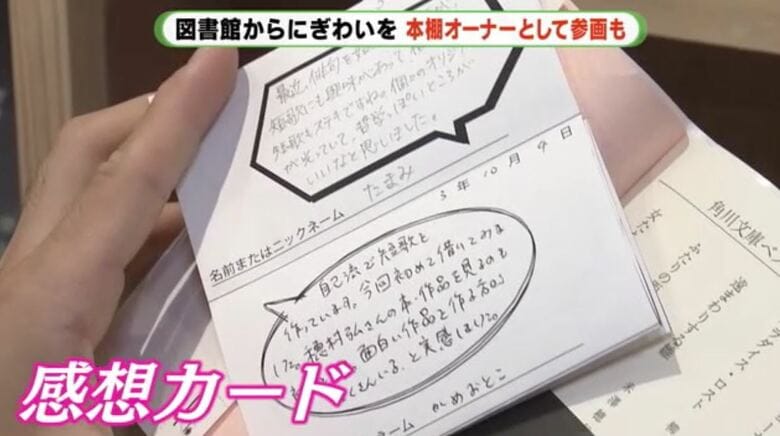 図書館からにぎわいを 本棚オーナーとして参画も
最近、俳句を
短歌にも興味があって、
短歌もステキですね。個々のオリジ
が光っていて、哲学っぽいところが
いいなと思いました。
名前またはニックネーム たまみ
3年10月9日
自己流で短歌を
作っています。今回初めて借りてみま
した。穂村弘さんの本・作品を見るのも
面白い作品を作る方が
くさんいる。と実感しました。
ネーム かめおとこ
感想カード
角川文庫ベ
女た
ふたりの
遠まわりする雛
ラダイス・ロスト
米澤穂